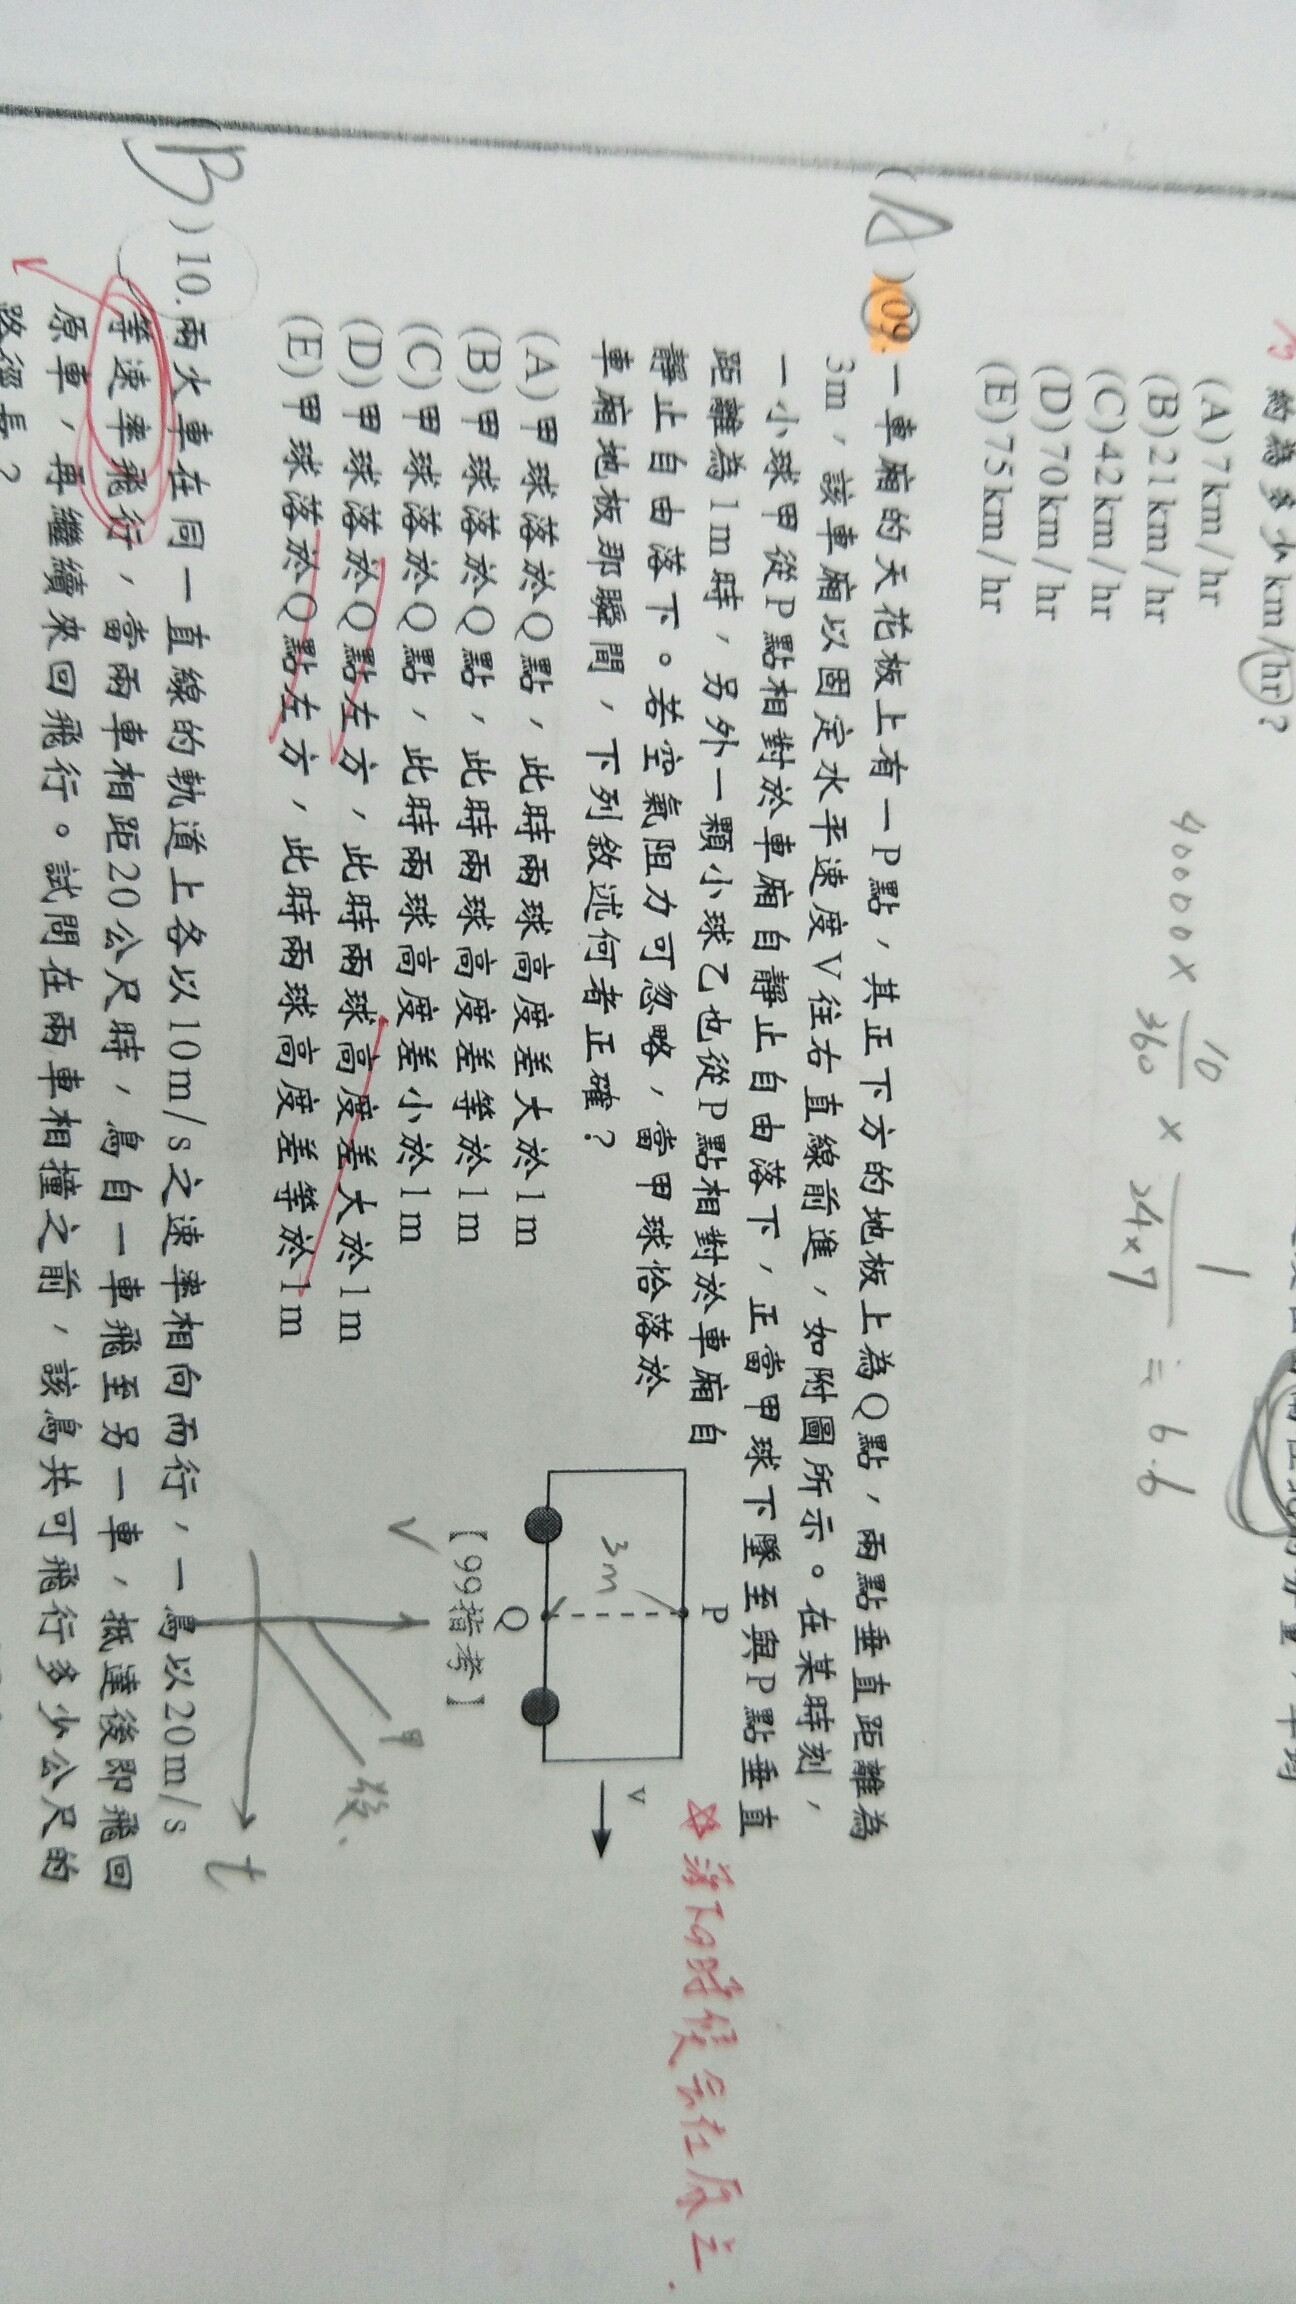 約為多少km/hr?
(A)7km/hr
(B)21km/hr
(C)42km/hr
(D)70km/hr
(E)75km/hr
40000× 10/360 × 1/24×7 = 6.6
(A)09.一車廂的天花板上有一P點，其正下方的地板上為Q點，兩點垂直距離為
3m，該車廂以固定水平速度V往右直線前進，如附圖所示。在某時刻，
一小球甲從P點相對於車廂自靜止自由落下，正當甲球下墜至與P點垂直
距離為1m時，另外一顆小球乙也從P點相對於車廂自
靜止自由落下。若空氣阻力可忽略，當甲球恰落於
車廂地板那瞬間，下列敘述何者正確？
(A)甲球落於Q點，此時兩球高度差大於1m
(B)甲球落於Q點，此時兩球高度差等於1m
(C)甲球落於Q點，此時兩球高度差小於1m
(D)甲球落於Q點左方，此時兩球高度差大於1m
(E)甲球落於Q點左方，此時兩球高度差等於1m
P
3m
Q
v
【99指考】
☆落下的時候會在原立.
V
甲
t
(B)10.兩火車在同一直線的軌道上各以10m/s之速率相向而行，一鳥以20m/s
等速率飛行，當兩車相距20公尺時，鳥自一車飛至另一車，抵達後即飛回
原車，再繼續來回飛行。試問在兩車相撞之前，該鳥共可飛行多少公尺的
路徑長？